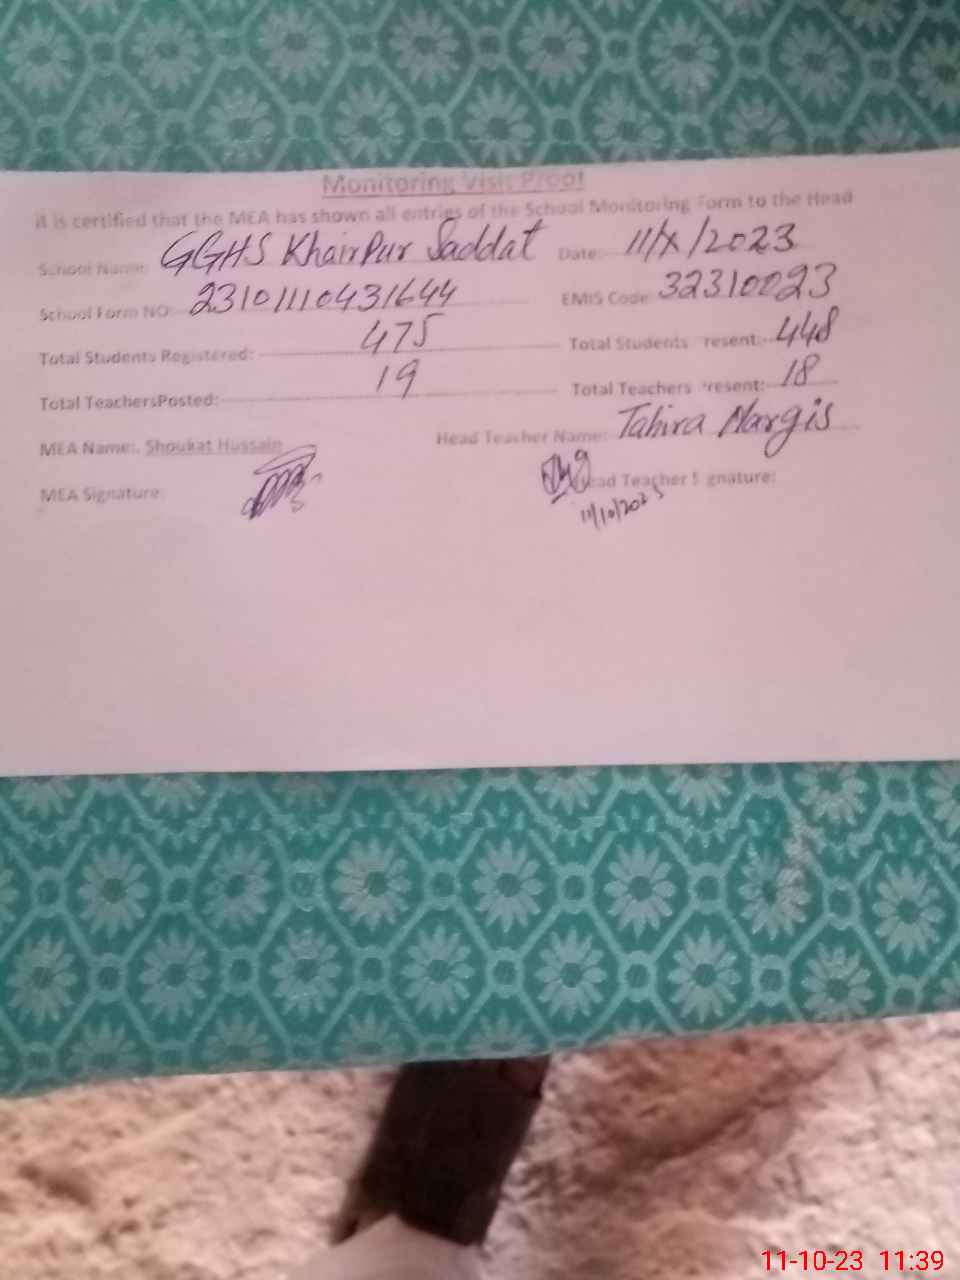 Monitoring Visit Proof
it is certified that the MEA has shown all entries of the School Monitoring Form to the Head
School Name: GGHS KhairPur Saddat Date: 11/X/2023
School Form NO: 23101110431644 EMIS Code 32310023
Total Students Registered: 475 Total Students resent: 448
Total TeachersPosted: 19 Total Teachers resent: 18
MEA Name:. Shoukat Hussain Head Teacher Name: Tahira Nargis
MEA Signature: ead Teacher S gnature:
11/10/2023
11-10-23 11:39